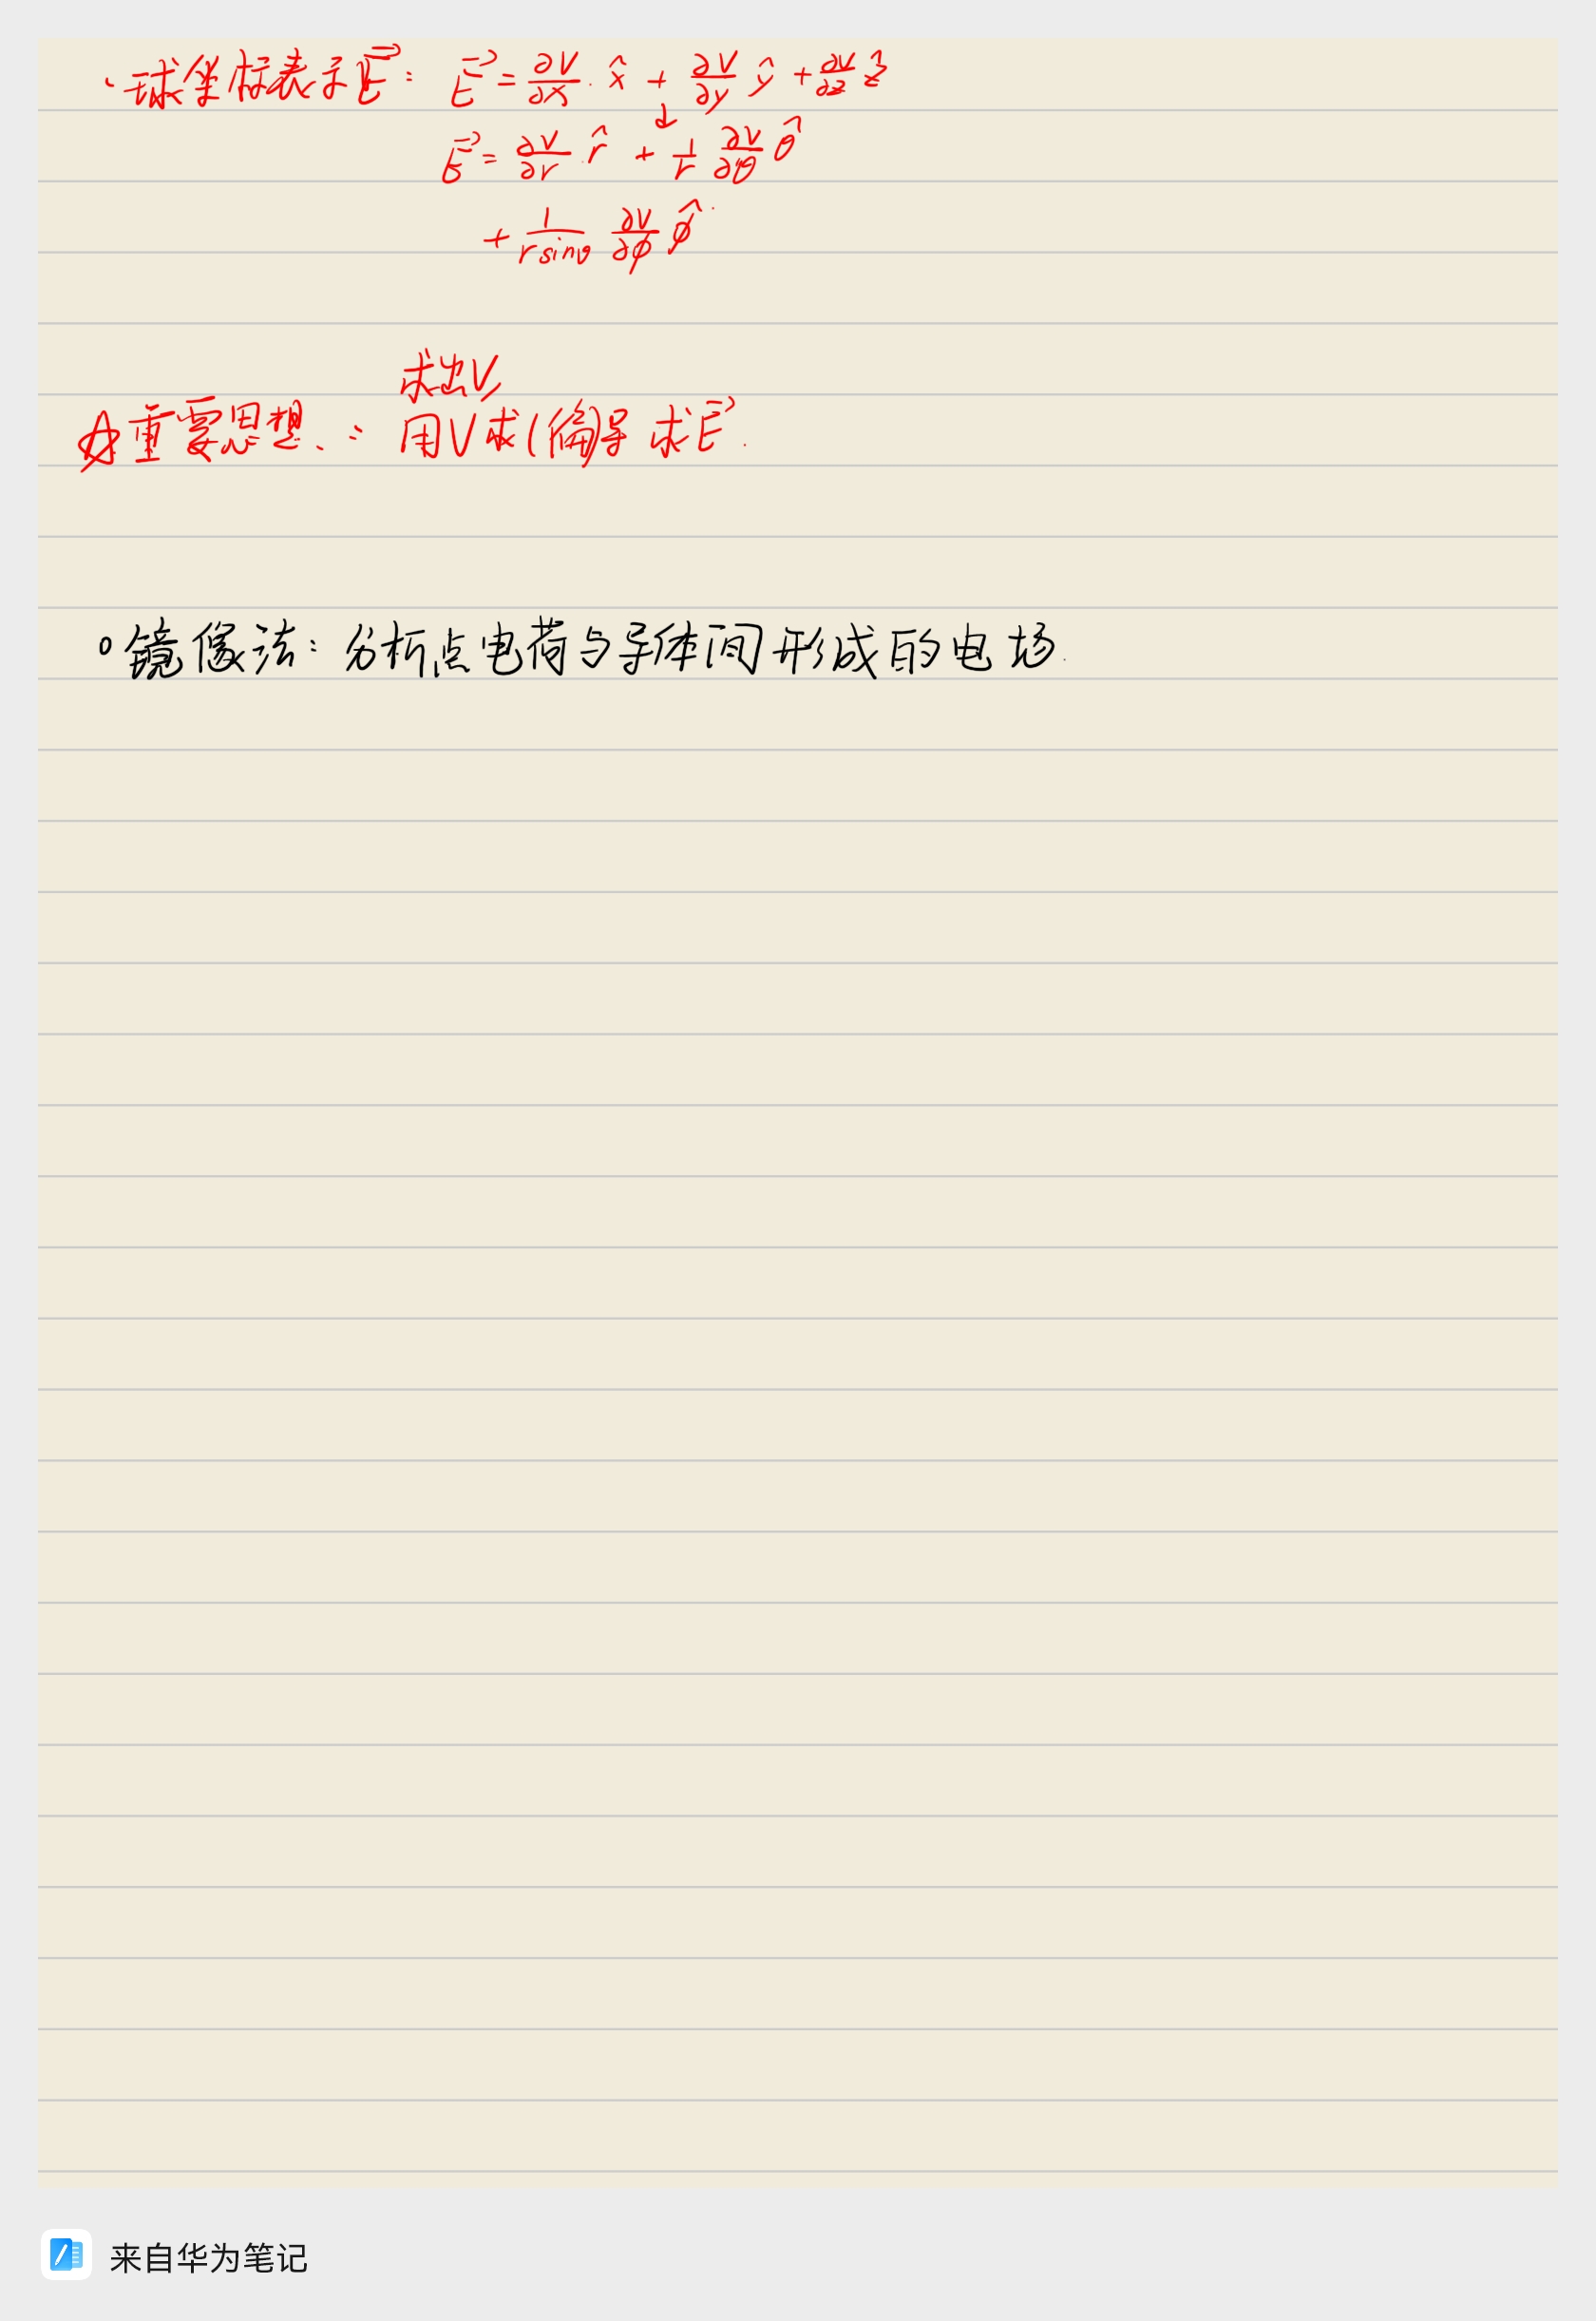 · 球坐标表示E⃗: E⃗ = ∂V/∂x · x̂ + ∂V/∂y ŷ + ∂V/∂z ẑ
↓
E⃗ = ∂V/∂r · r̂ + 1/r ∂V/∂θ θ̂
+ 1/(r sinθ) ∂V/∂φ φ̂
求出V
☆重要思想: 用V求(偏)导求E⃗.
○镜像法: 分析点电荷与导体间形成的电场.
来自华为笔记